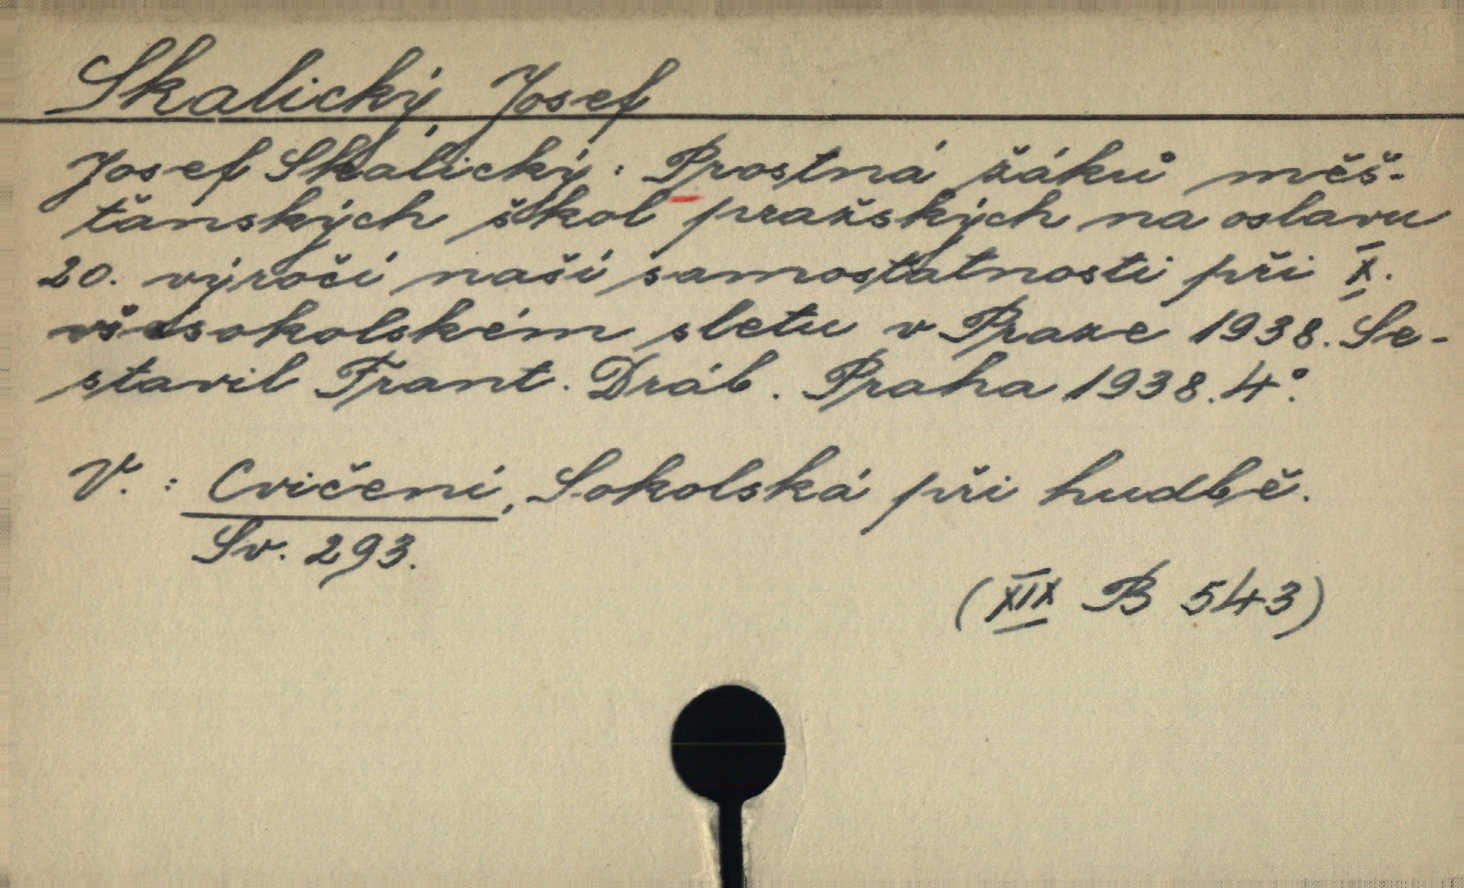 Skalický Josef
Josef Skalický: Prostná žáků měš-
ťanských škol pražských na oslavu
20. výročí naší samostatnosti při X.
všesokolském sletu v Praze 1938. Se-
stavil Frant. Dráb. Praha 1938. 4°.
V.: Cvičení, Sokolská při hudbě.
Sv. 293.
(XIX B 543)